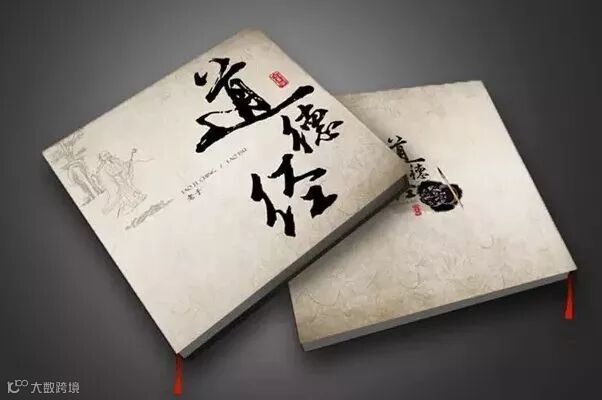 道德经
TAO TE CHING / LAO
老子
道德经
大数跨境